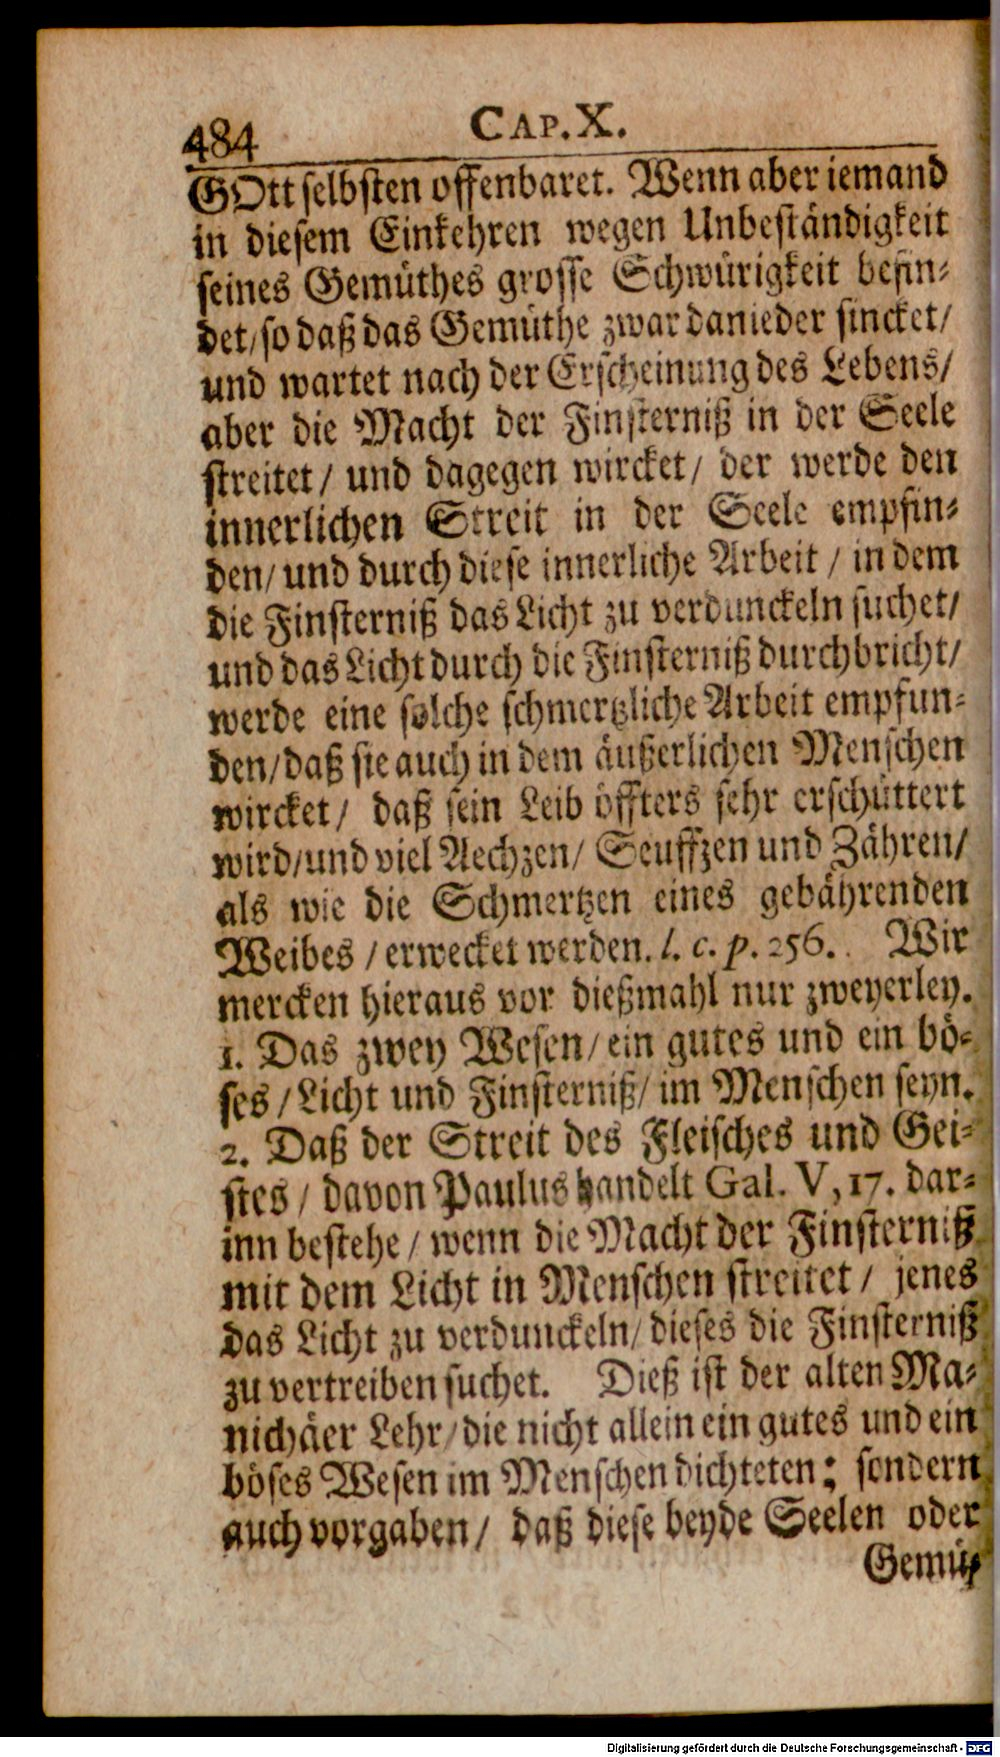 484 CAP. X.
GOtt selbsten offenbaret. Wenn aber iemand
in diesem Einkehren wegen Unbeständigkeit
seines Gemüthes grosse Schwürigkeit befin-
det/ so daß das Gemüthe zwar danieder sincket/
und wartet nach der Erscheinung des Lebens/
aber die Macht der Finsterniß in der Seele
streitet/ und dagegen wircket/ der werde den
innerlichen Streit in der Seele empfin-
den/ und durch diese innerliche Arbeit / in dem
die Finsterniß das Licht zu verdunckeln suchet/
und das Licht durch die Finsterniß durchbricht/
werde eine solche schmertzliche Arbeit empfun-
den/ daß sie auch in dem äußerlichen Menschen
wircket/ daß sein Leib öffters sehr erschüttert
wird/ und viel Aechzen/ Seuffzen und Zähren/
als wie die Schmertzen eines gebährenden
Weibes / erwecket werden. l. c. p. 256. Wir
mercken hieraus vor dießmahl nur zweyerley.
1. Das zwey Wesen/ ein gutes und ein bö-
ses / Licht und Finsterniß/ im Menschen seyn.
2. Daß der Streit des Fleisches und Gei-
stes / davon Paulus handelt Gal. V, 17. dar-
inn bestehe / wenn die Macht der Finsterniß
mit dem Licht in Menschen streitet / jenes
das Licht zu verdunckeln/ dieses die Finsterniß
zu vertreiben suchet. Dieß ist der alten Ma-
nichäer Lehr/ die nicht allein ein gutes und ein
böses Wesen im Menschen dichteten; sondern
auch vorgaben/ daß diese beyde Seelen oder
Gemü-
Digitalisierung gefördert durch die Deutsche Forschungsgemeinschaft - DFG